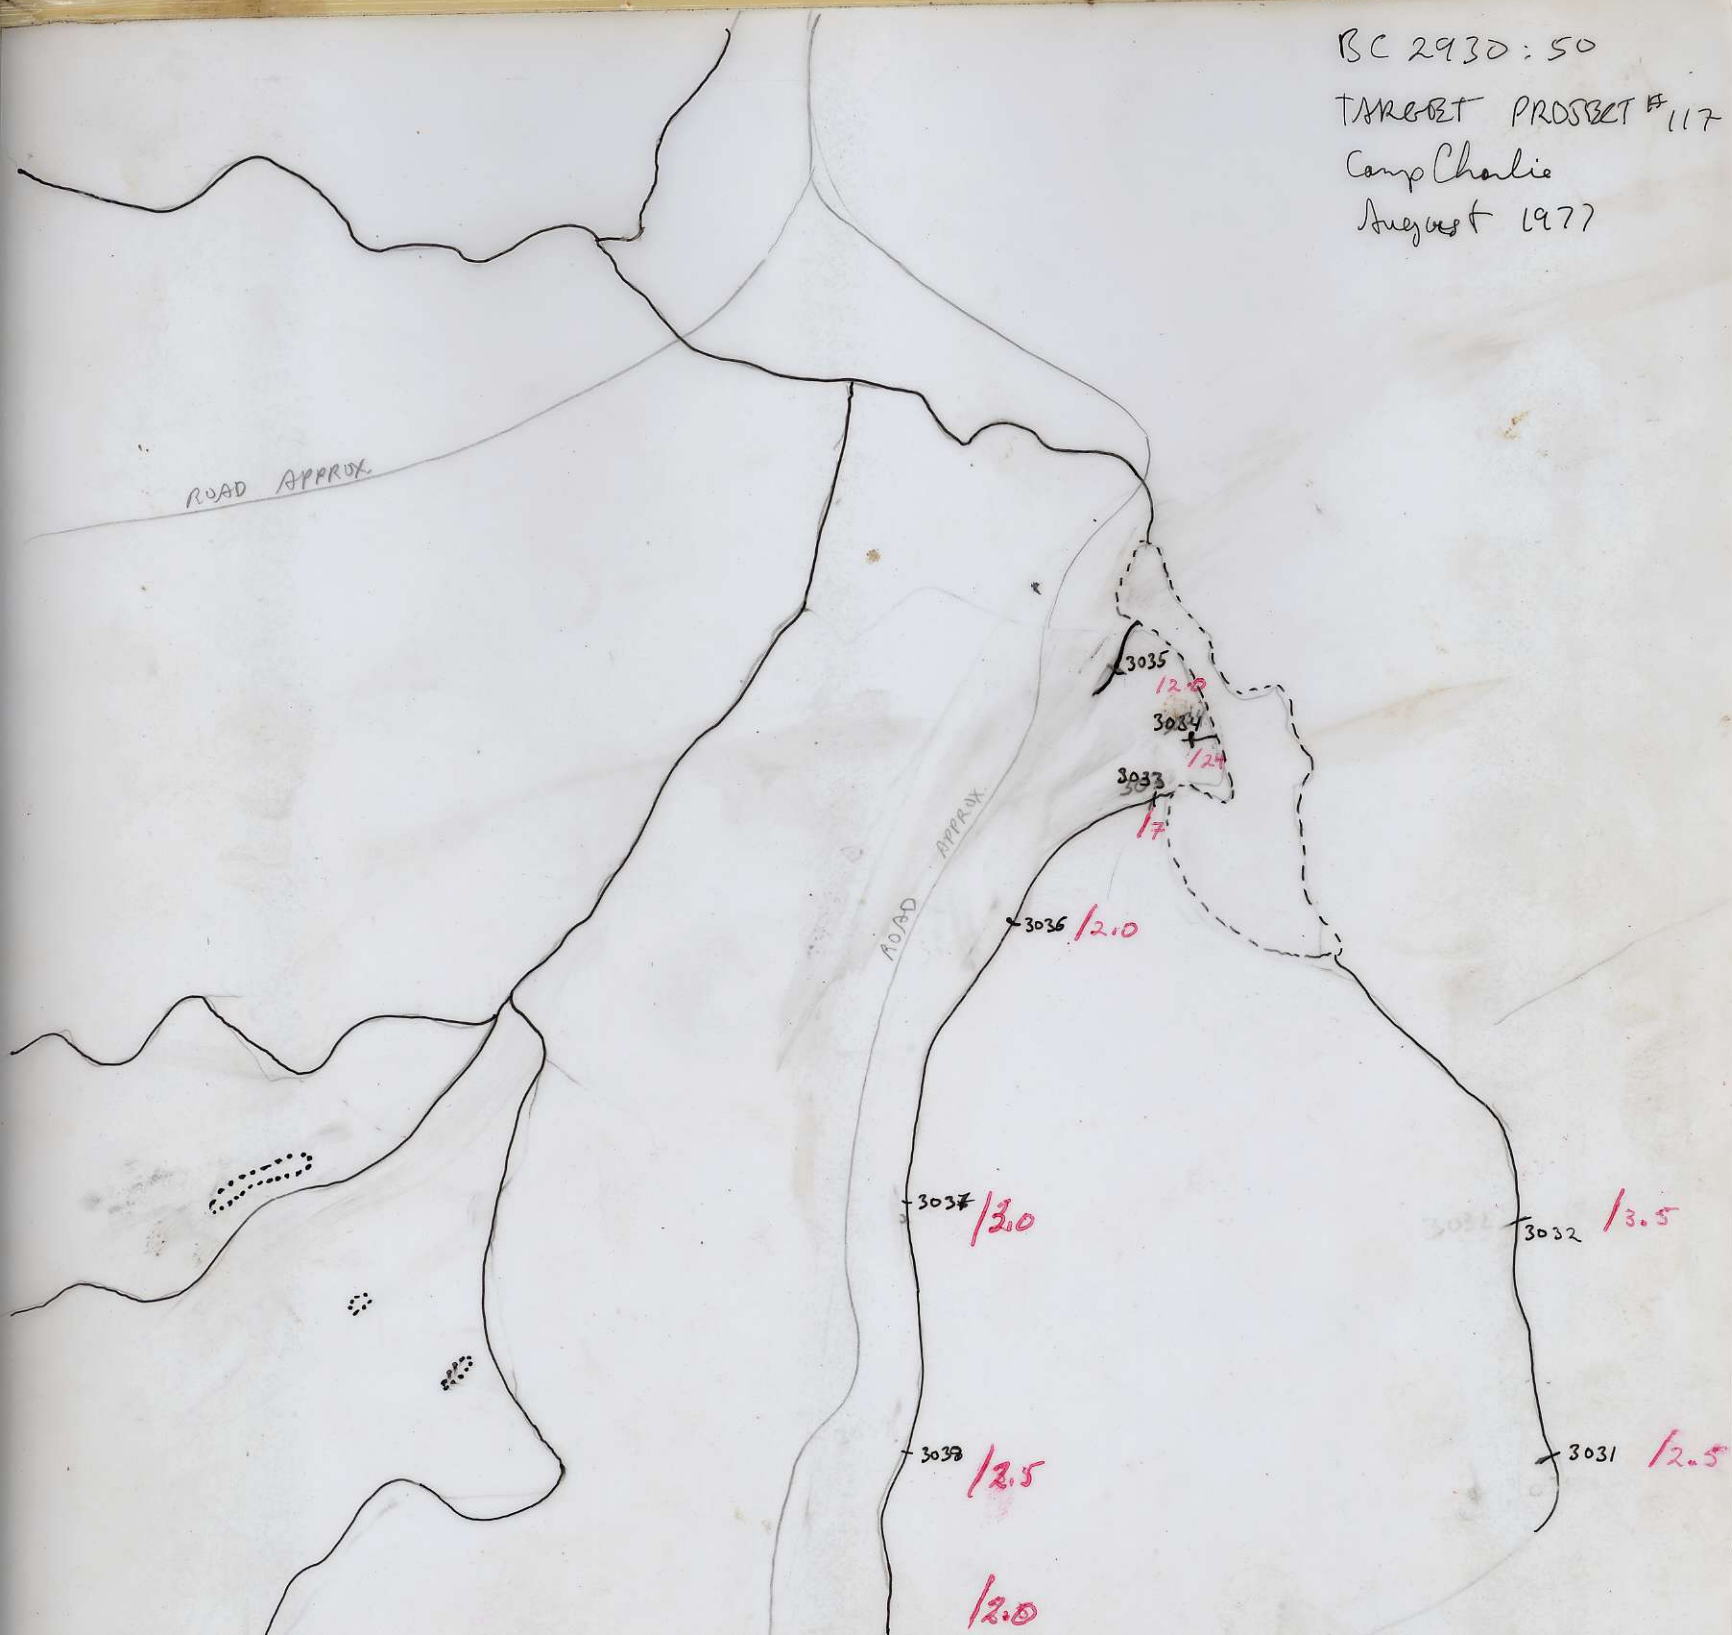 BC 2930:50
TARGET PROJECT #117
Camp Charlie
August 1977
ROAD APPROX.
3035
/2.0
3034
/24
3033
/7
ROAD APPROX.
3036 /2.0
3037 /3.0
3032 /3.5
3038 /2.5
3031 /2.5
/2.0